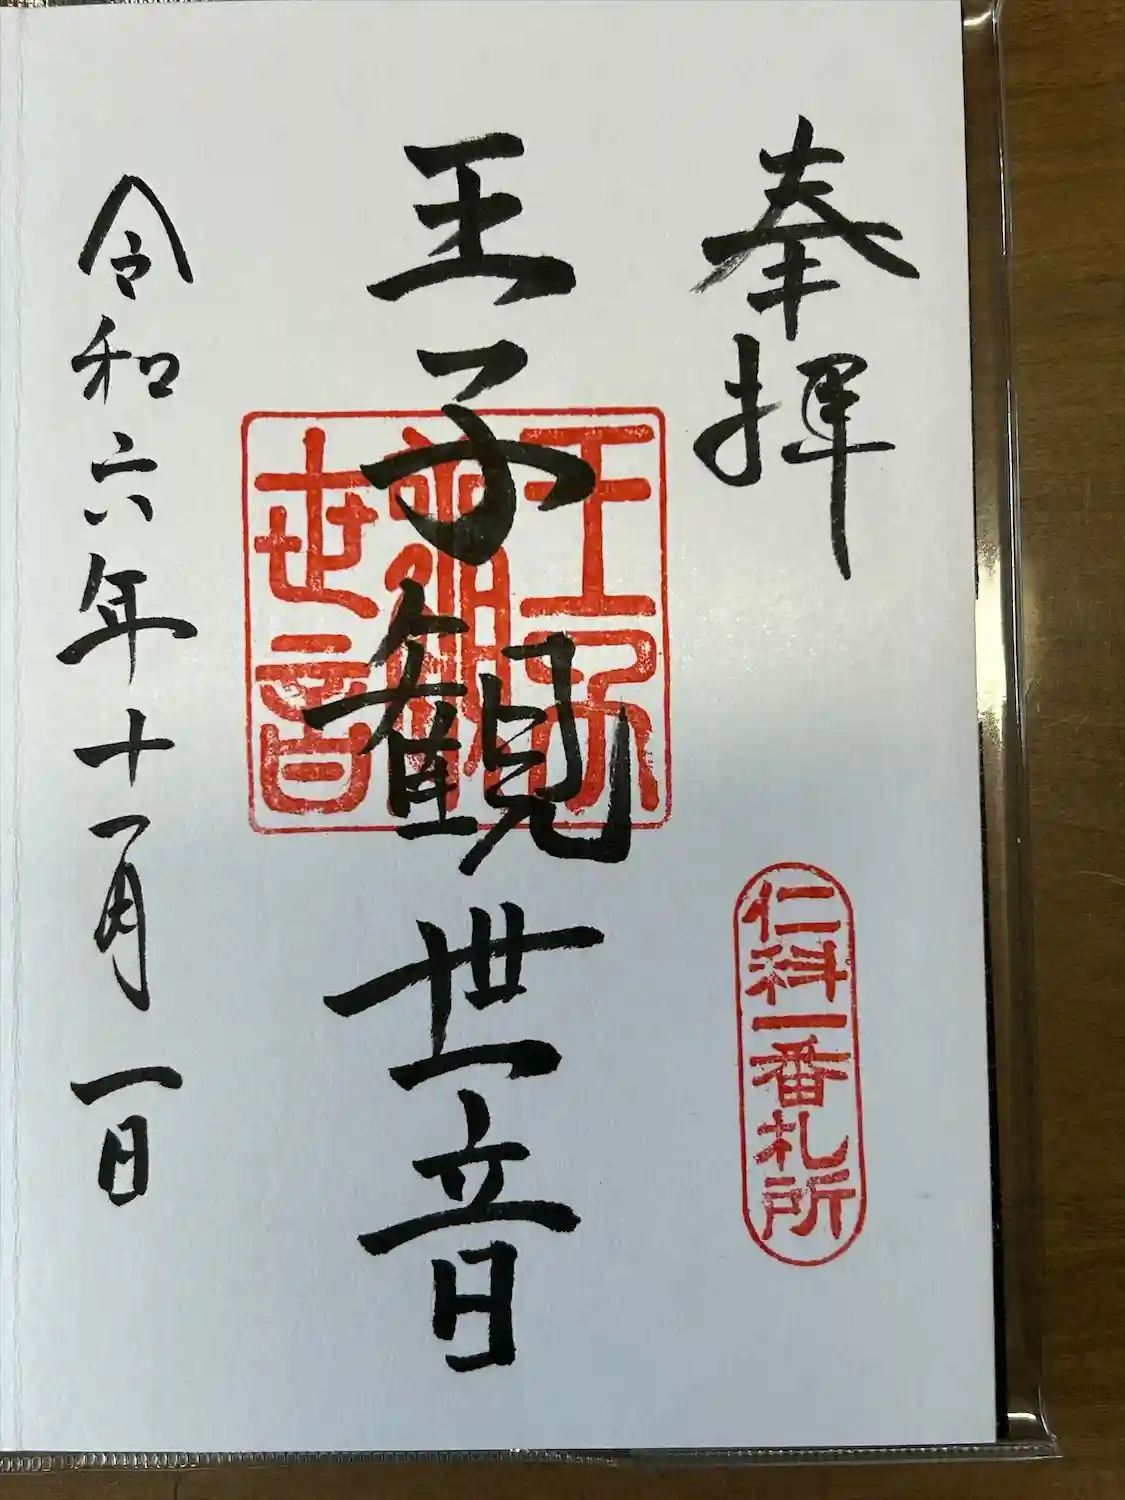 奉拝
仁科一番札所
王子観世音
王子
観
世音
令和六年十一月一日